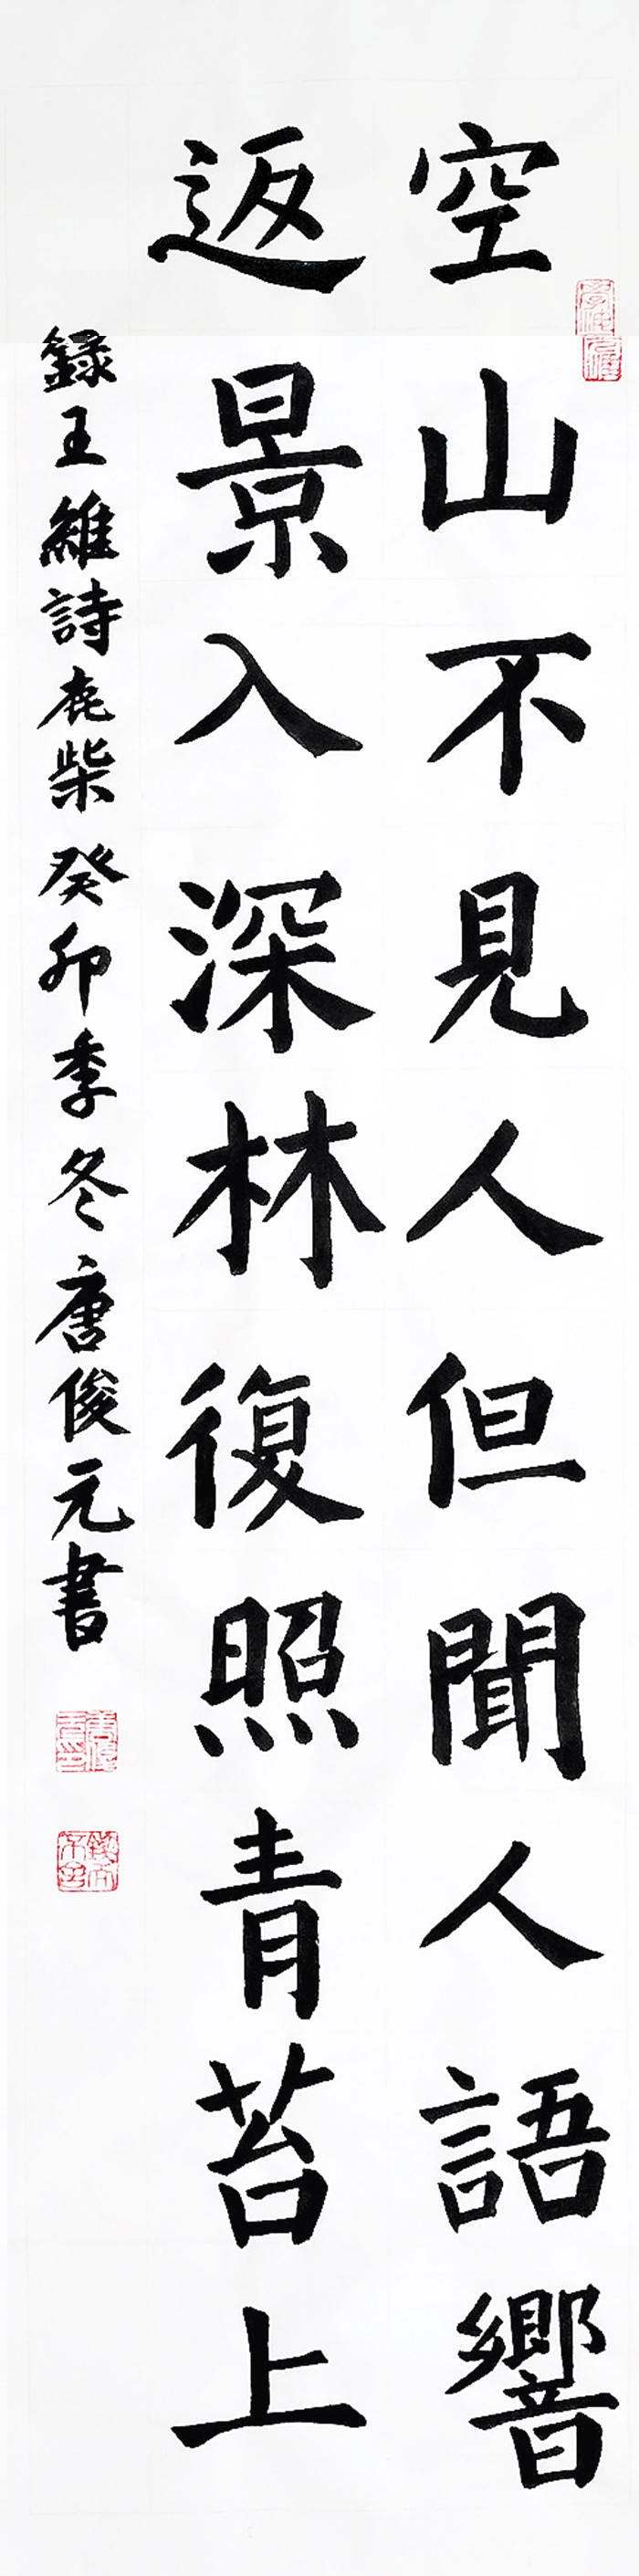 空山不見人但聞人語響
返景入深林復照青苔上
錄王維詩鹿柴癸卯季冬唐俊元書